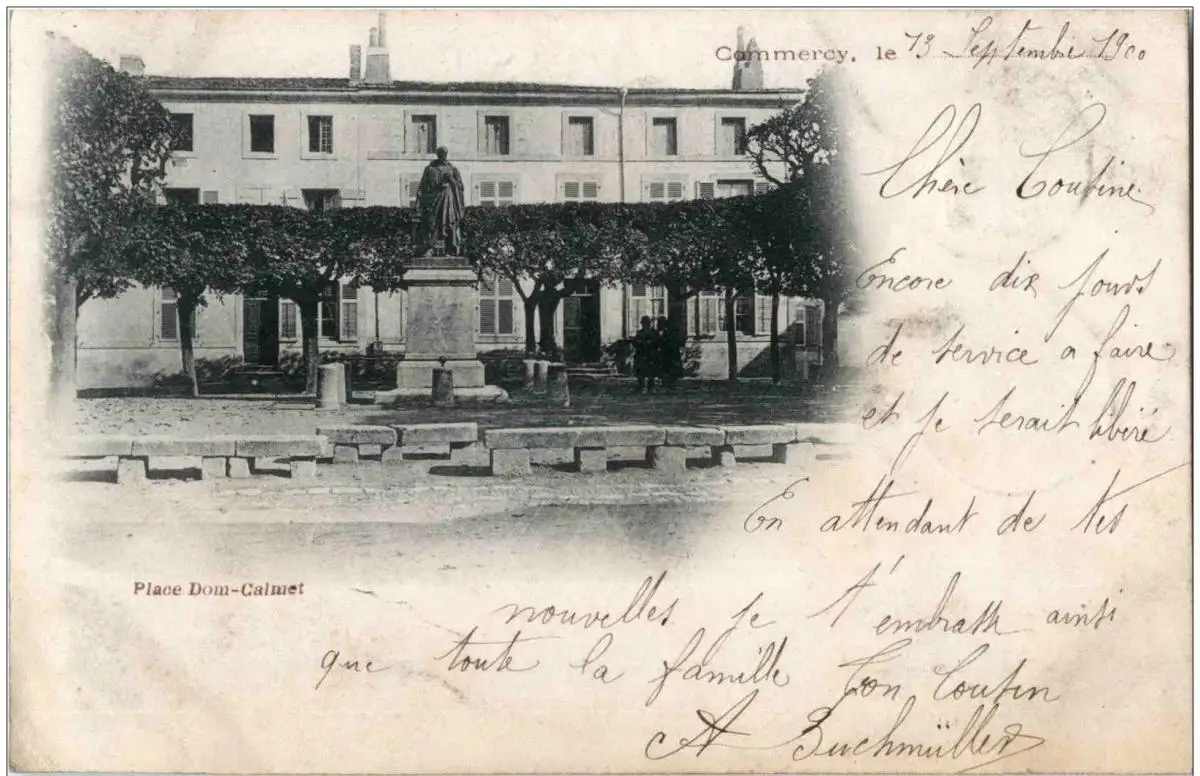 Commercy, le 13 Septembre 1900
Chère Cousine
Encore dix jours
de service a faire
et je serait libéré
En attendant de tes
nouvelles je t'embrasse ainsi
que toute la famille Ton Cousin
A Buchmüller
Place Dom-Calmet